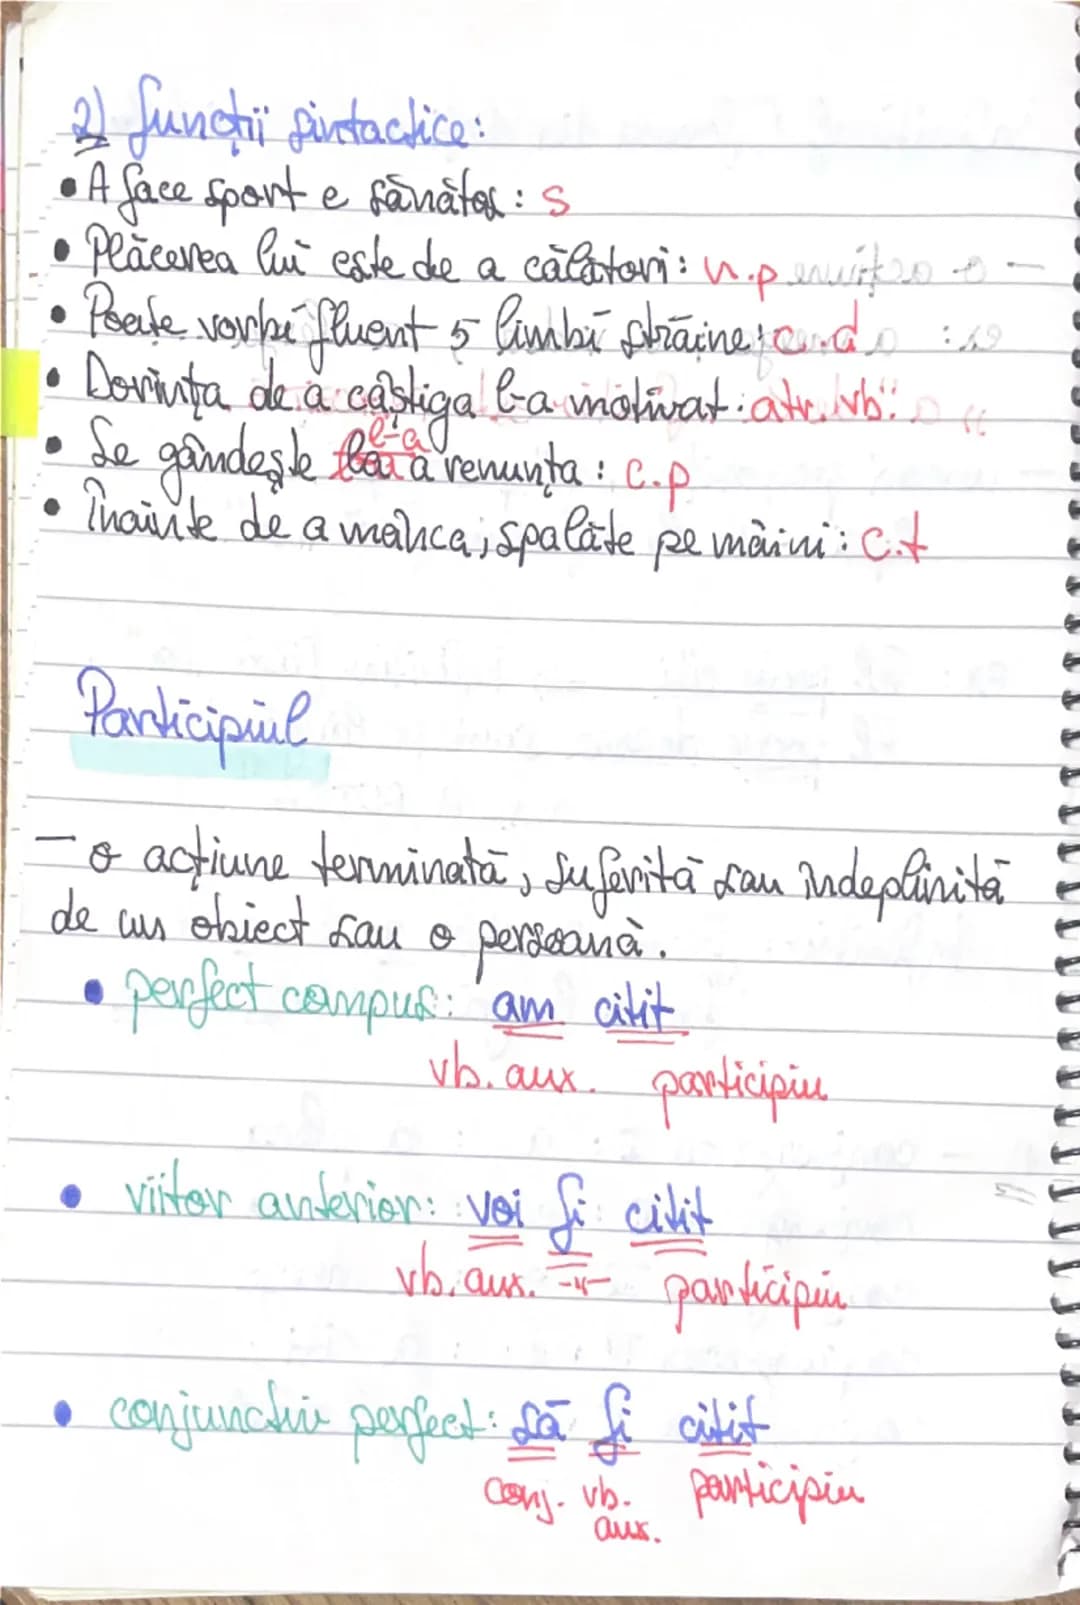 2) funcții sintactice:
• A face sport e sănătos: s
• Plăcerea lui este de a călători: n.p
• Poate vorbi fluent 5 limbi străine: c.d
• Dorința de a câștiga l-a motivat: atr. vb.
l-a
• Se gândește la a renunța: c.p
• Înainte de a mânca, spălăte pe mâini: c.t
Participiul
- o acțiune terminată, suferită sau îndeplinită
de un obiect sau o persoană.
• perfect compus: am citit
vb. aux. participiu
• viitor anterior: voi fi citit
vb. aux. -"- participiu
• conjunctiv perfect: să fi citit
conj. vb. participiu
aux.